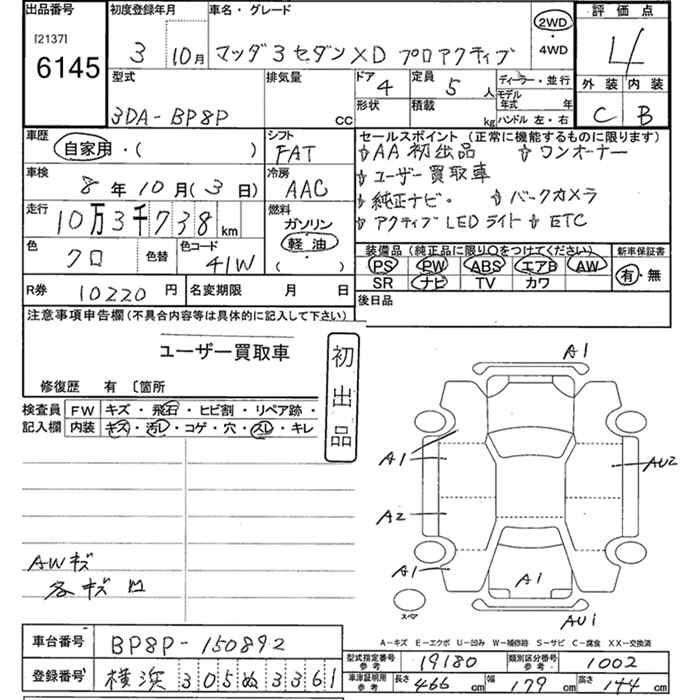 出品番号 初度登録年月 車名・グレード 2WD ・ 4WD 評価点
[2137]
6145 3 10月 マツダ3セダン XD プロアクティブ 4
型式 排気量 ドア 4 定員 5人 ディーラー・並行 外装 内装
3DA-BP8P cc 形状 積載 kg モデル年式 年 C B
ハンドル 左・右
車歴 自家用・( ) シフト FAT セールスポイント (正常に機能するものに限ります)
AA初出品 ワンオーナー
車検 8年10月(3日) 冷房 AAC ユーザー買取車
純正ナビ。 バックカメラ
走行 10万3千738km 燃料 ガソリン 軽油 ( ) アクティブLEDライト ETC
色 クロ 色替 色コード 41W 装備品 (純正品に限り○をつけてください) 新車保証書
PS PW ABS エアB AW 有・無
R券 10220円 名変期限 月 日 SR ナビ TV カワ
注意事項申告欄(不具合内容等は具体的に記入して下さい) 後日品
ユーザー買取車 初出品
修復歴 有 〔箇所
検査員 FW キズ・飛石・ヒビ割・リペア跡・
記入欄 内装 キズ・汚レ・コゲ・穴・スレ・キレ
A1
A1 AU2
A2
AWキズ
各キズ凹
A1 A1
スペア AU1
A-キズ E-エクボ U-凹み W-補修跡 S-サビ C-腐食 XX-交換済
車台番号 BP8P-150892 型式指定番号 参考 19180 類別区分番号 参考 1002
登録番号 横浜 305ぬ3361 車庫証明用 参考 長さ 466cm 幅 179cm 高さ 144cm